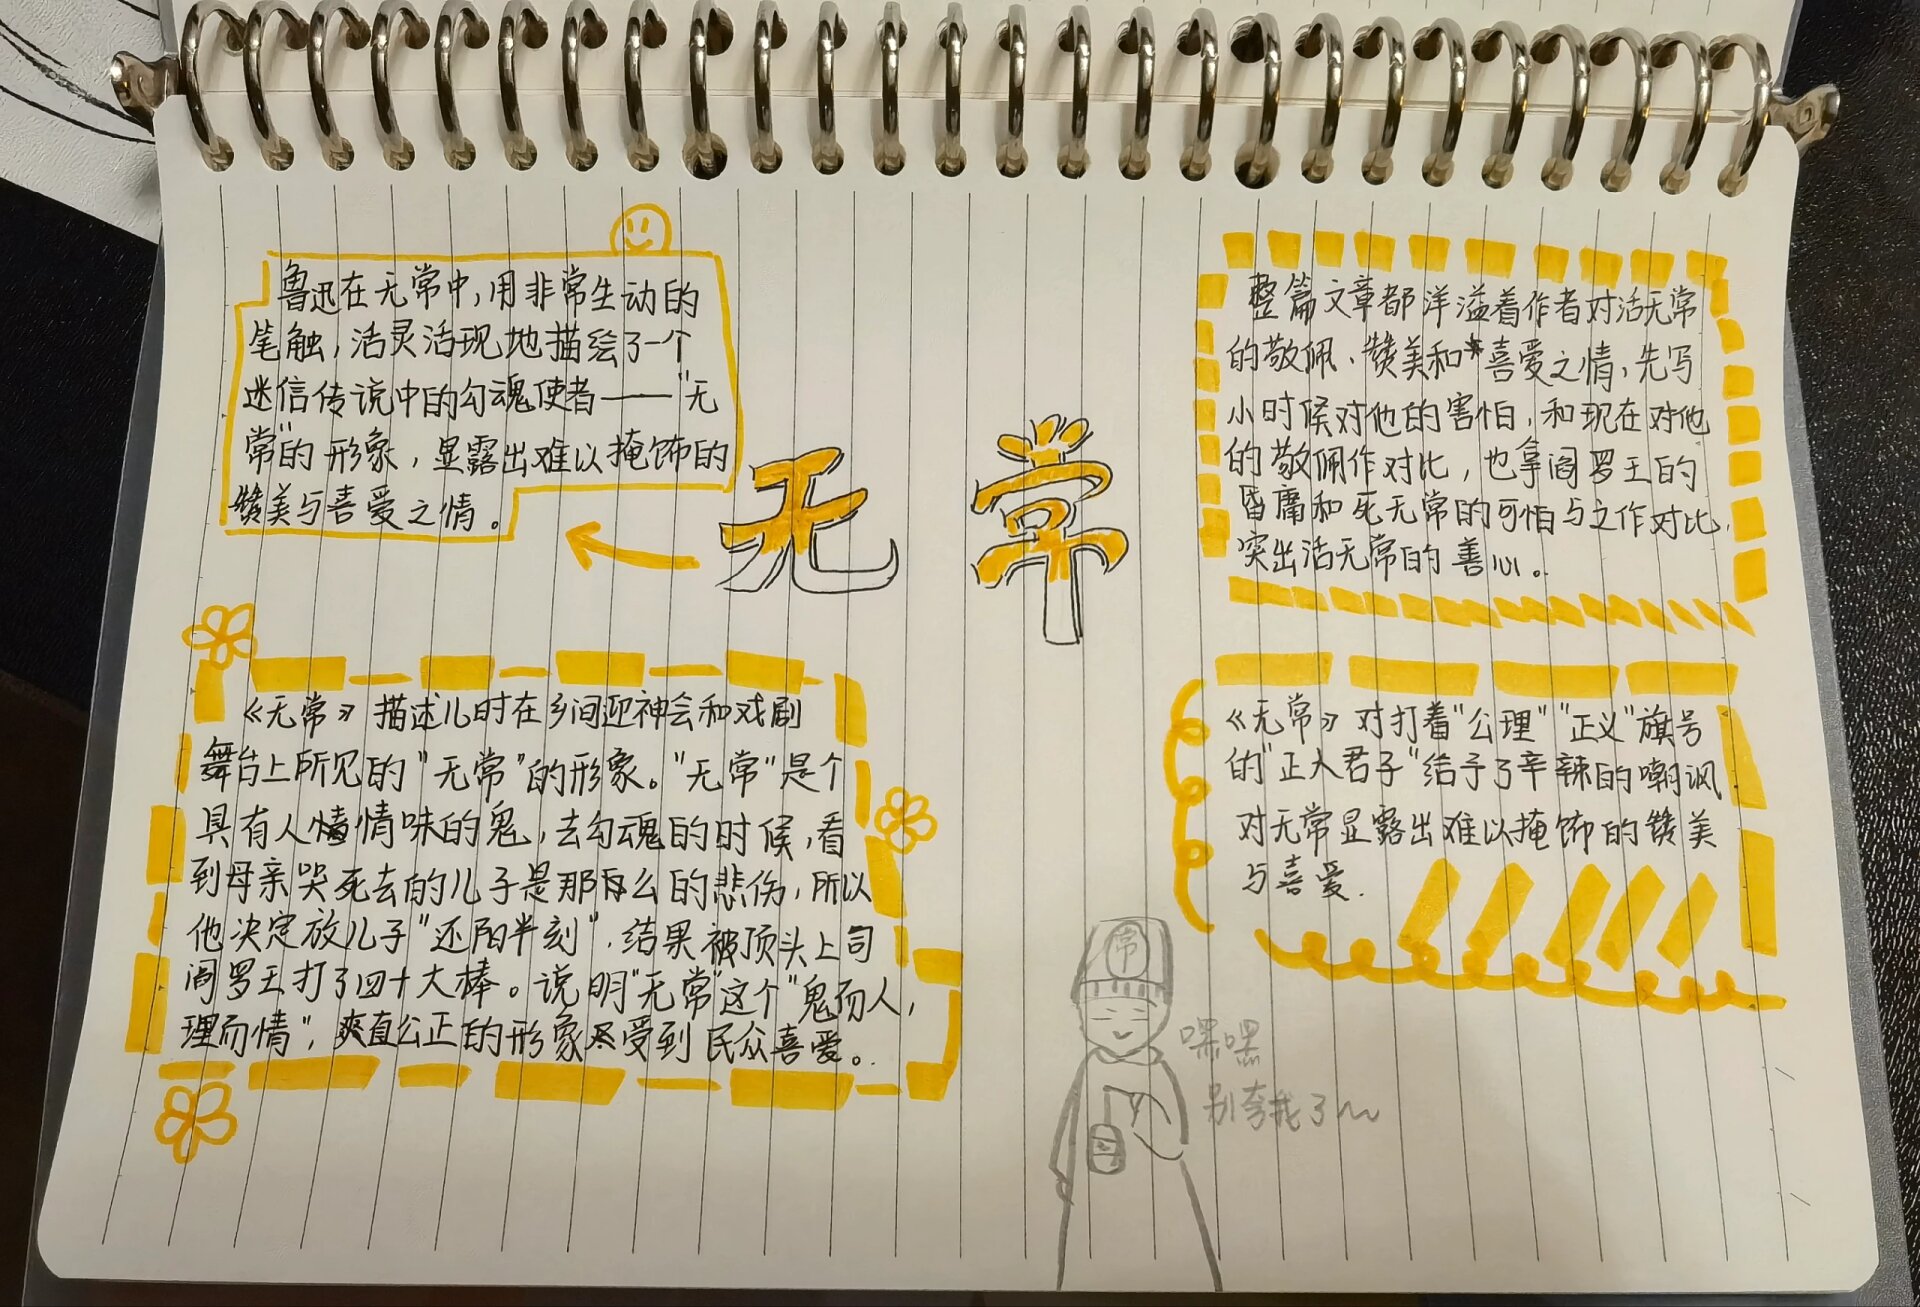 鲁迅在无常中，用非常生动的
笔触，活灵活现地描绘了一个
迷信传说中的勾魂使者——"无
常"的形象，显露出难以掩饰的
赞美与喜爱之情。
无常
整篇文章都洋溢着作者对活无常
的敬佩、赞美和喜爱之情，先写
小时候对他的害怕，和现在对他
的敬佩作对比，也拿阎罗王的
昏庸和死无常的可怕与之作对比，
突出活无常的善心。
《无常》描述儿时在乡间迎神会和戏剧
舞台上所见的"无常"的形象。"无常"是个
具有人情味的鬼，去勾魂的时候，看
到母亲哭死去的儿子是那么的悲伤，所以
他决定放儿子"还阳半刻"，结果被顶头上司
阎罗王打了四十大棒。说明"无常"这个"鬼而人，
理而情"，爽直公正的形象受到民众喜爱。
《无常》对打着"公理""正义"旗号
的"正人君子"给予了辛辣的嘲讽
对无常显露出难以掩饰的赞美
与喜爱.
常
嘿嘿
别夸我了~~